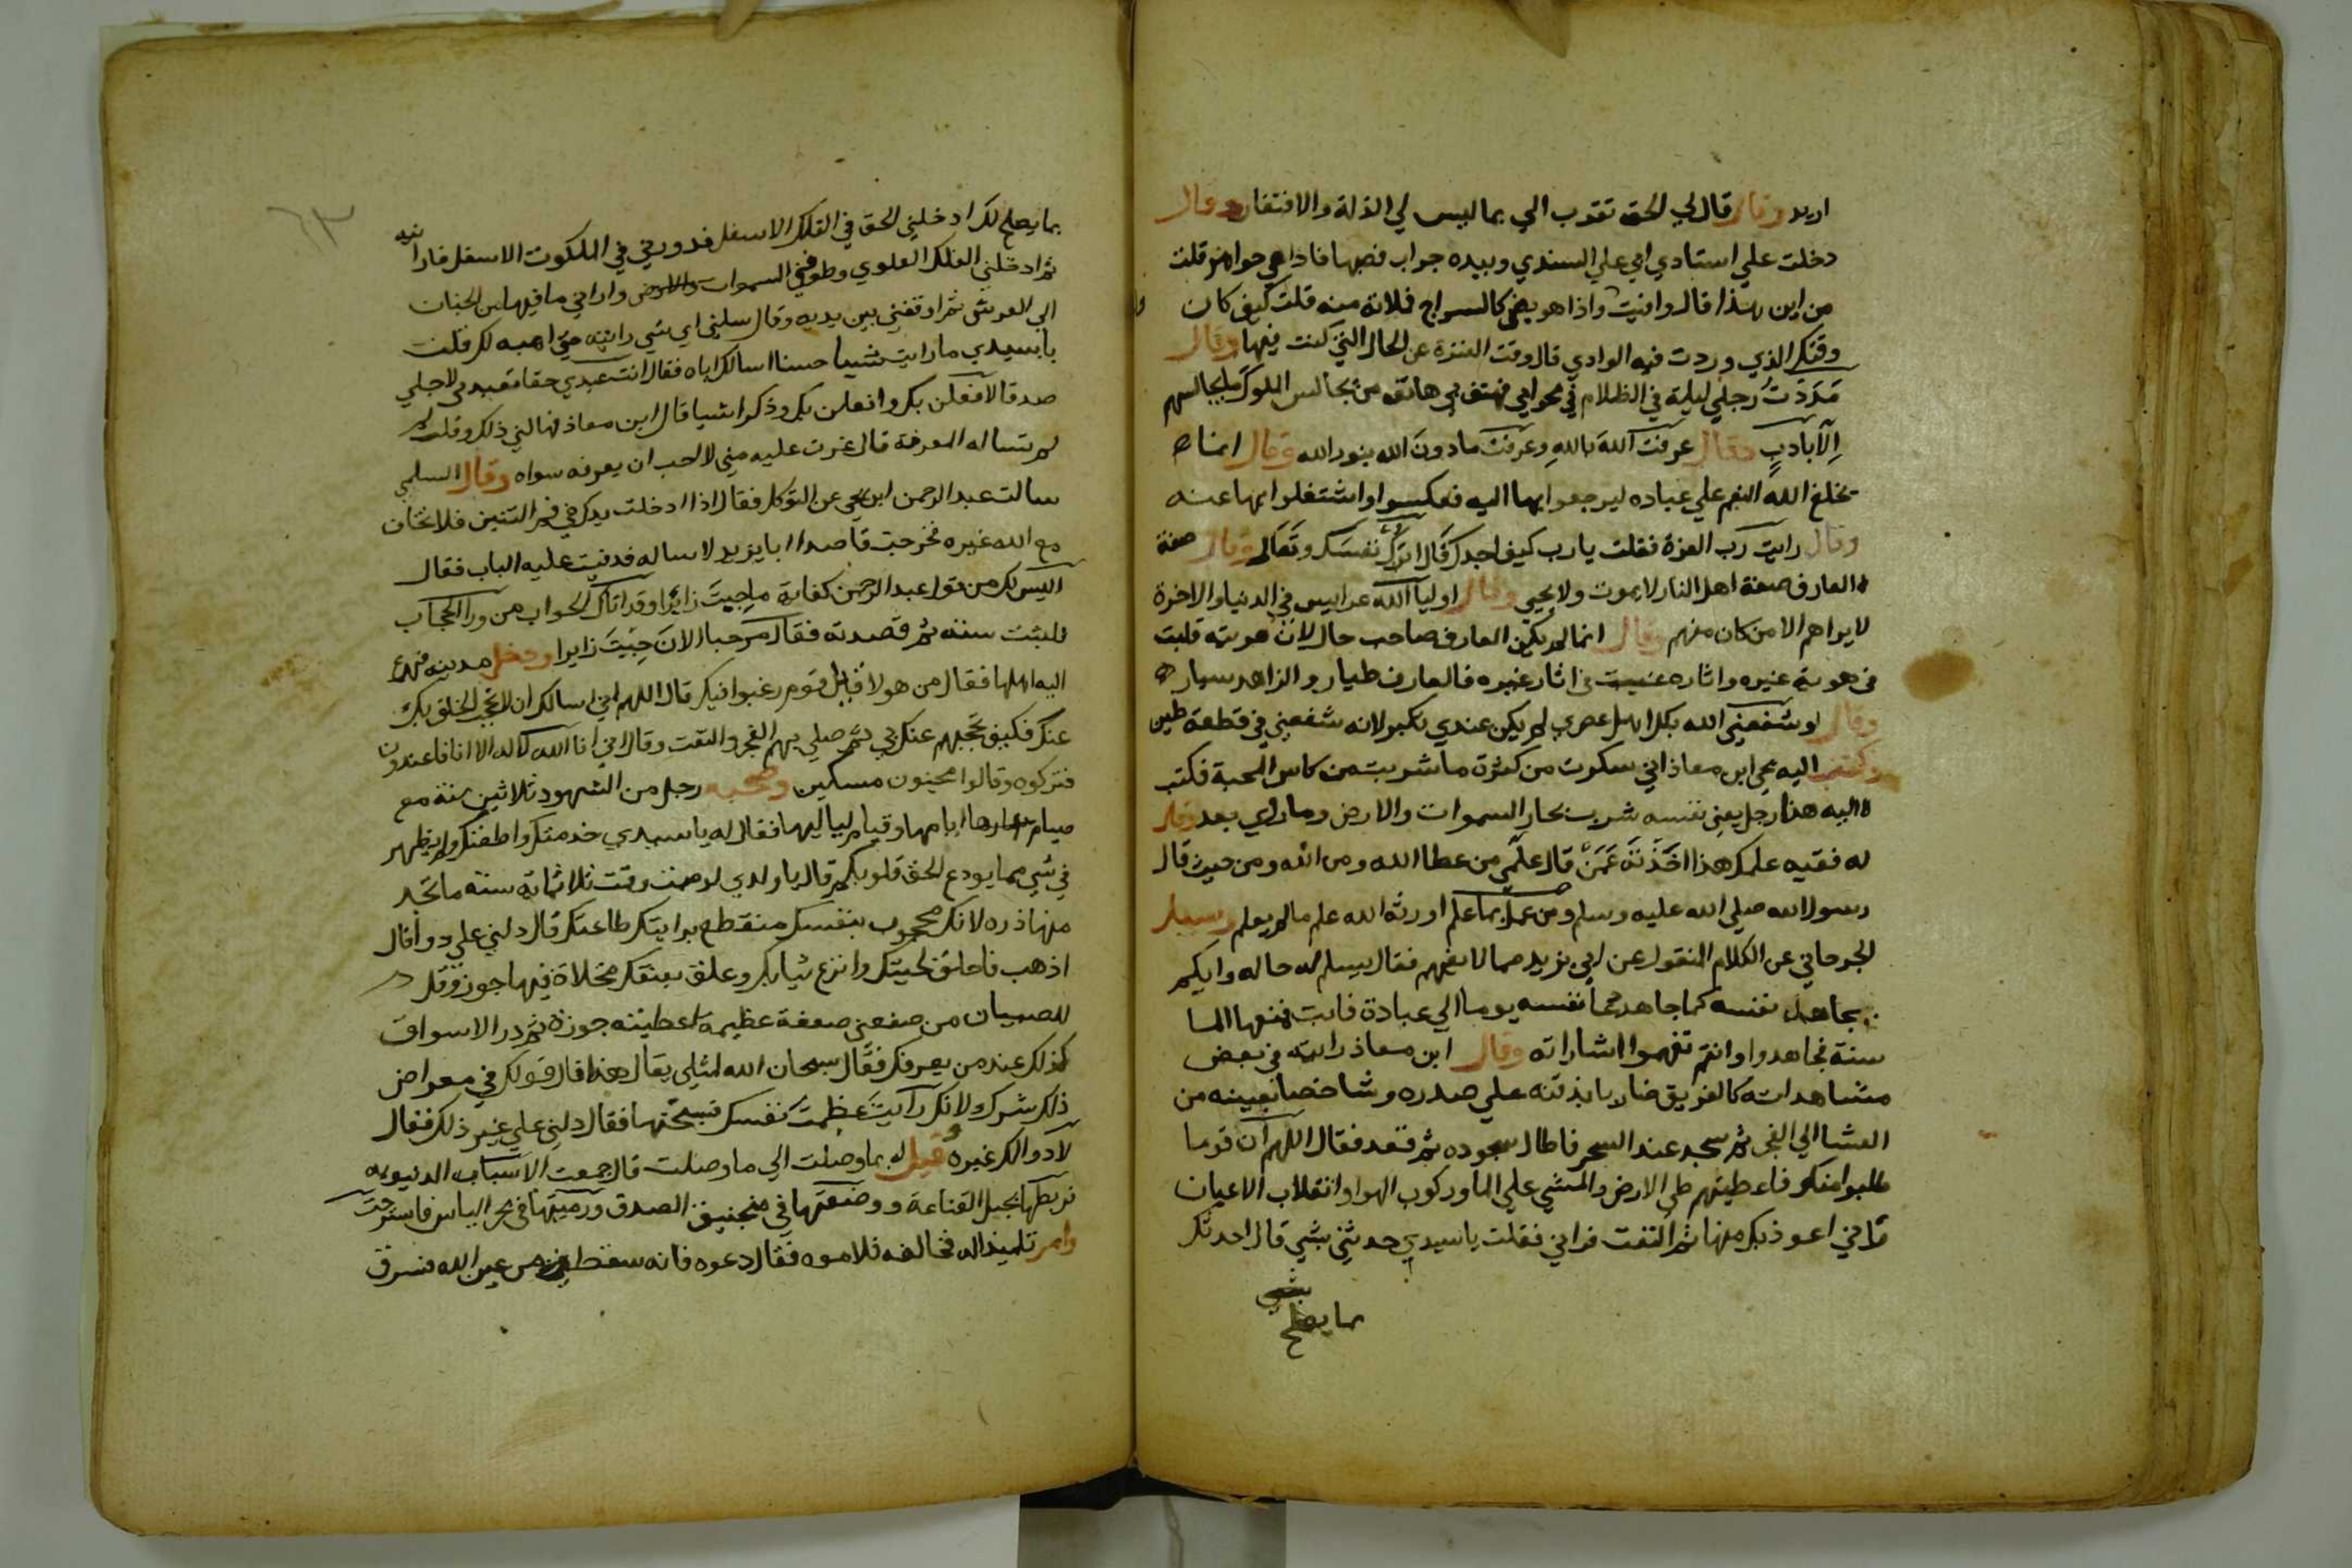 اريد وقال قال لي الحق تقرب الي بما ليس لي الذلة والافتقار وقال
دخلت علي استادي ابي علي السندي وبيده جراب فصبها فاذا هي جواهر قلت
من اين هذا قال وافيت واذا هو يضي كالسراج فملأته منه قلت كيف كان
وقتك الذي وردت فيه الوادي قال وقت الفترة عن الحال التي كنت فيها وقال
مَدَدْتُ رجلي ليلة في الظلام في محرابي فهتف بي هاتف من يجالس الملوك ما يجالسهم
اِلا بادبٍ وقال عرفت الله بالله وعرفت ما دون الله بنور الله وقال انما
يخلع الله النعم علي عباده ليرجعوا بها اليه فعكسوا واشتغلوا بها عنه
وقال رايت رب العزة فقلت يا رب كيف اجدك قال اترك نفسك وتعالى وقال صفة
العارف صفة اهل النار لا يموت ولا يحيي وقال اوليا الله عرايس في الدنيا والاخرة
لا يراهم الا من كان منهم وقال انما لم يكن العارف صاحب حال لان هويته قلبت
في هوية غيره واثاره غيبت في اثار غيره فالعارف طيار والزاهد سيار
وقال لو شفعني الله بكل اهل عصري لم يكن عندي بكبير لانه شفعني في قطعة طين
وكتب اليه يحي ابن معاذ اني سكرت من كثرة ما شربت من كاس المحبة فكتب
اليه هذا رجل يعني نفسه شرب بحار السموات والارض وما روي بعد وقال
له فقيه علمك هذا اخذته عَمَّنْ قال علمي من عطا الله ومن الله ومن حيث قال
رسول الله صلي الله عليه وسلم من عمل بما علم اورثه الله علم ما لم يعلم وسيل
الجرجاني عن الكلام المنقول عن ابي يزيد مما لا يفهم فقال يسلم له حاله وايكم
يجاهد نفسه كما جاهد دعا نفسه يوما الي عبادة فابت فمنعها الما
سنة فجاهدوا وانتم تفهموا اشاراته وقال ابن معاذ رايته في بعض
مشاهداته كالغريق ضاربا بذقنه علي صدره شاخصا بعينه من
العشا الي الفجر ثم سجد عند السحر فاطال سجوده ثم قعد فقال اللهم ان قوما
طلبوا منك فاعطيتهم طي الارض والمشي علي الما وركوب الهوا وانقلاب الاعيان
واني اعوذ بك منها ثم التفت فراني فقلت يا سيدي حدثني بشي قال احدثك
بما يصلح
بما يصلح لك ادخلني الحق في الفلك الاسفل فدورني في الملكوت الاسفل فارانيه
ثم ادخلني الفلك العلوي وطوفني السموات واراني ما فيها من الجنات
الي العرش ثم اوقفني بين يديه وقال سلني اي شي رايته حتي اهبه لك فقلت
يا سيدي ما رايت شيا حسنا اسالك اياه فقال انت عبدي حقا تعبدني لاجلي
صدقا لافعلن بك وافعلن بك وذكر اشيا قال ابن معاذ فهالني ذلك وقلت
لم تساله المعرفة قال غرت عليه مني لا احب ان يعرفه سواه وقال السلمي
سالت عبد الرحمن ابن يحي عن التوكل فقال اذا ادخلت يدك في فم التنين فلا تخاف
مع الله غيره فخرجت قاصدا ابا يزيد لاساله فدقيت عليه الباب فقال
اليس لك من قول عبد الرحمن كفاية ما جيت زايرا وقد اتاك الجواب من ورا الحجاب
فلبثت سنة ثم قصدته فقال مرحبا الان جيت زايرا ودخل مدينة فهرع
اليه اهلها فقال من هولا قيل قوم رغبوا فيك قال اللهم اني اسالك ان لا تحجب الخلق بك
عنك فكيف تحجبهم عنك بي ثم صلي بهم الفجر والتفت وقال اني انا الله لا اله الا انا فاعبدون
فتركوه وقالوا مجنون مسكين وصحبه رجل من الشهود ثلاثين سنة مع
صيام ايامها وقيام لياليها فقال له يا سيدي خدمتك ولم يظهر
في شي مما يودع الحق قلوبكم قال يا ولدي لو صمت وقمت ثلاثماية سنة ما تجد
منها ذره لانك محجوب بنفسك منقطع برايتك طاعتك قال دلني علي دوا قال
اذهب فاحلق لحيتك وانزع ثيابك وعلق بعنقك مخلاة فيها جوز وقل
للصبيان من صفعني صفعة عظيمة اعطيته جوزة ثم در الاسواق
كذلك عند من يعرفك فقال سبحان الله لمثلي يقال هذا قال قولك في معراض
ذلك شرك لانك رايت عظمت نفسك فسبحتها فقال دلني علي غير ذلك فقال
لا دوا لك غيره وقيل له بما وصلت الي ما وصلت قال جمعت الاسباب الدنيوية
فربطها بحبل القناعة ووضعتها في منجنيق الصدق ورميتها في بحر الياس فاسترحت
وامر تلميذا له فخالفه فلاموه فقال دعوه فانه سقط من عين الله فسرق